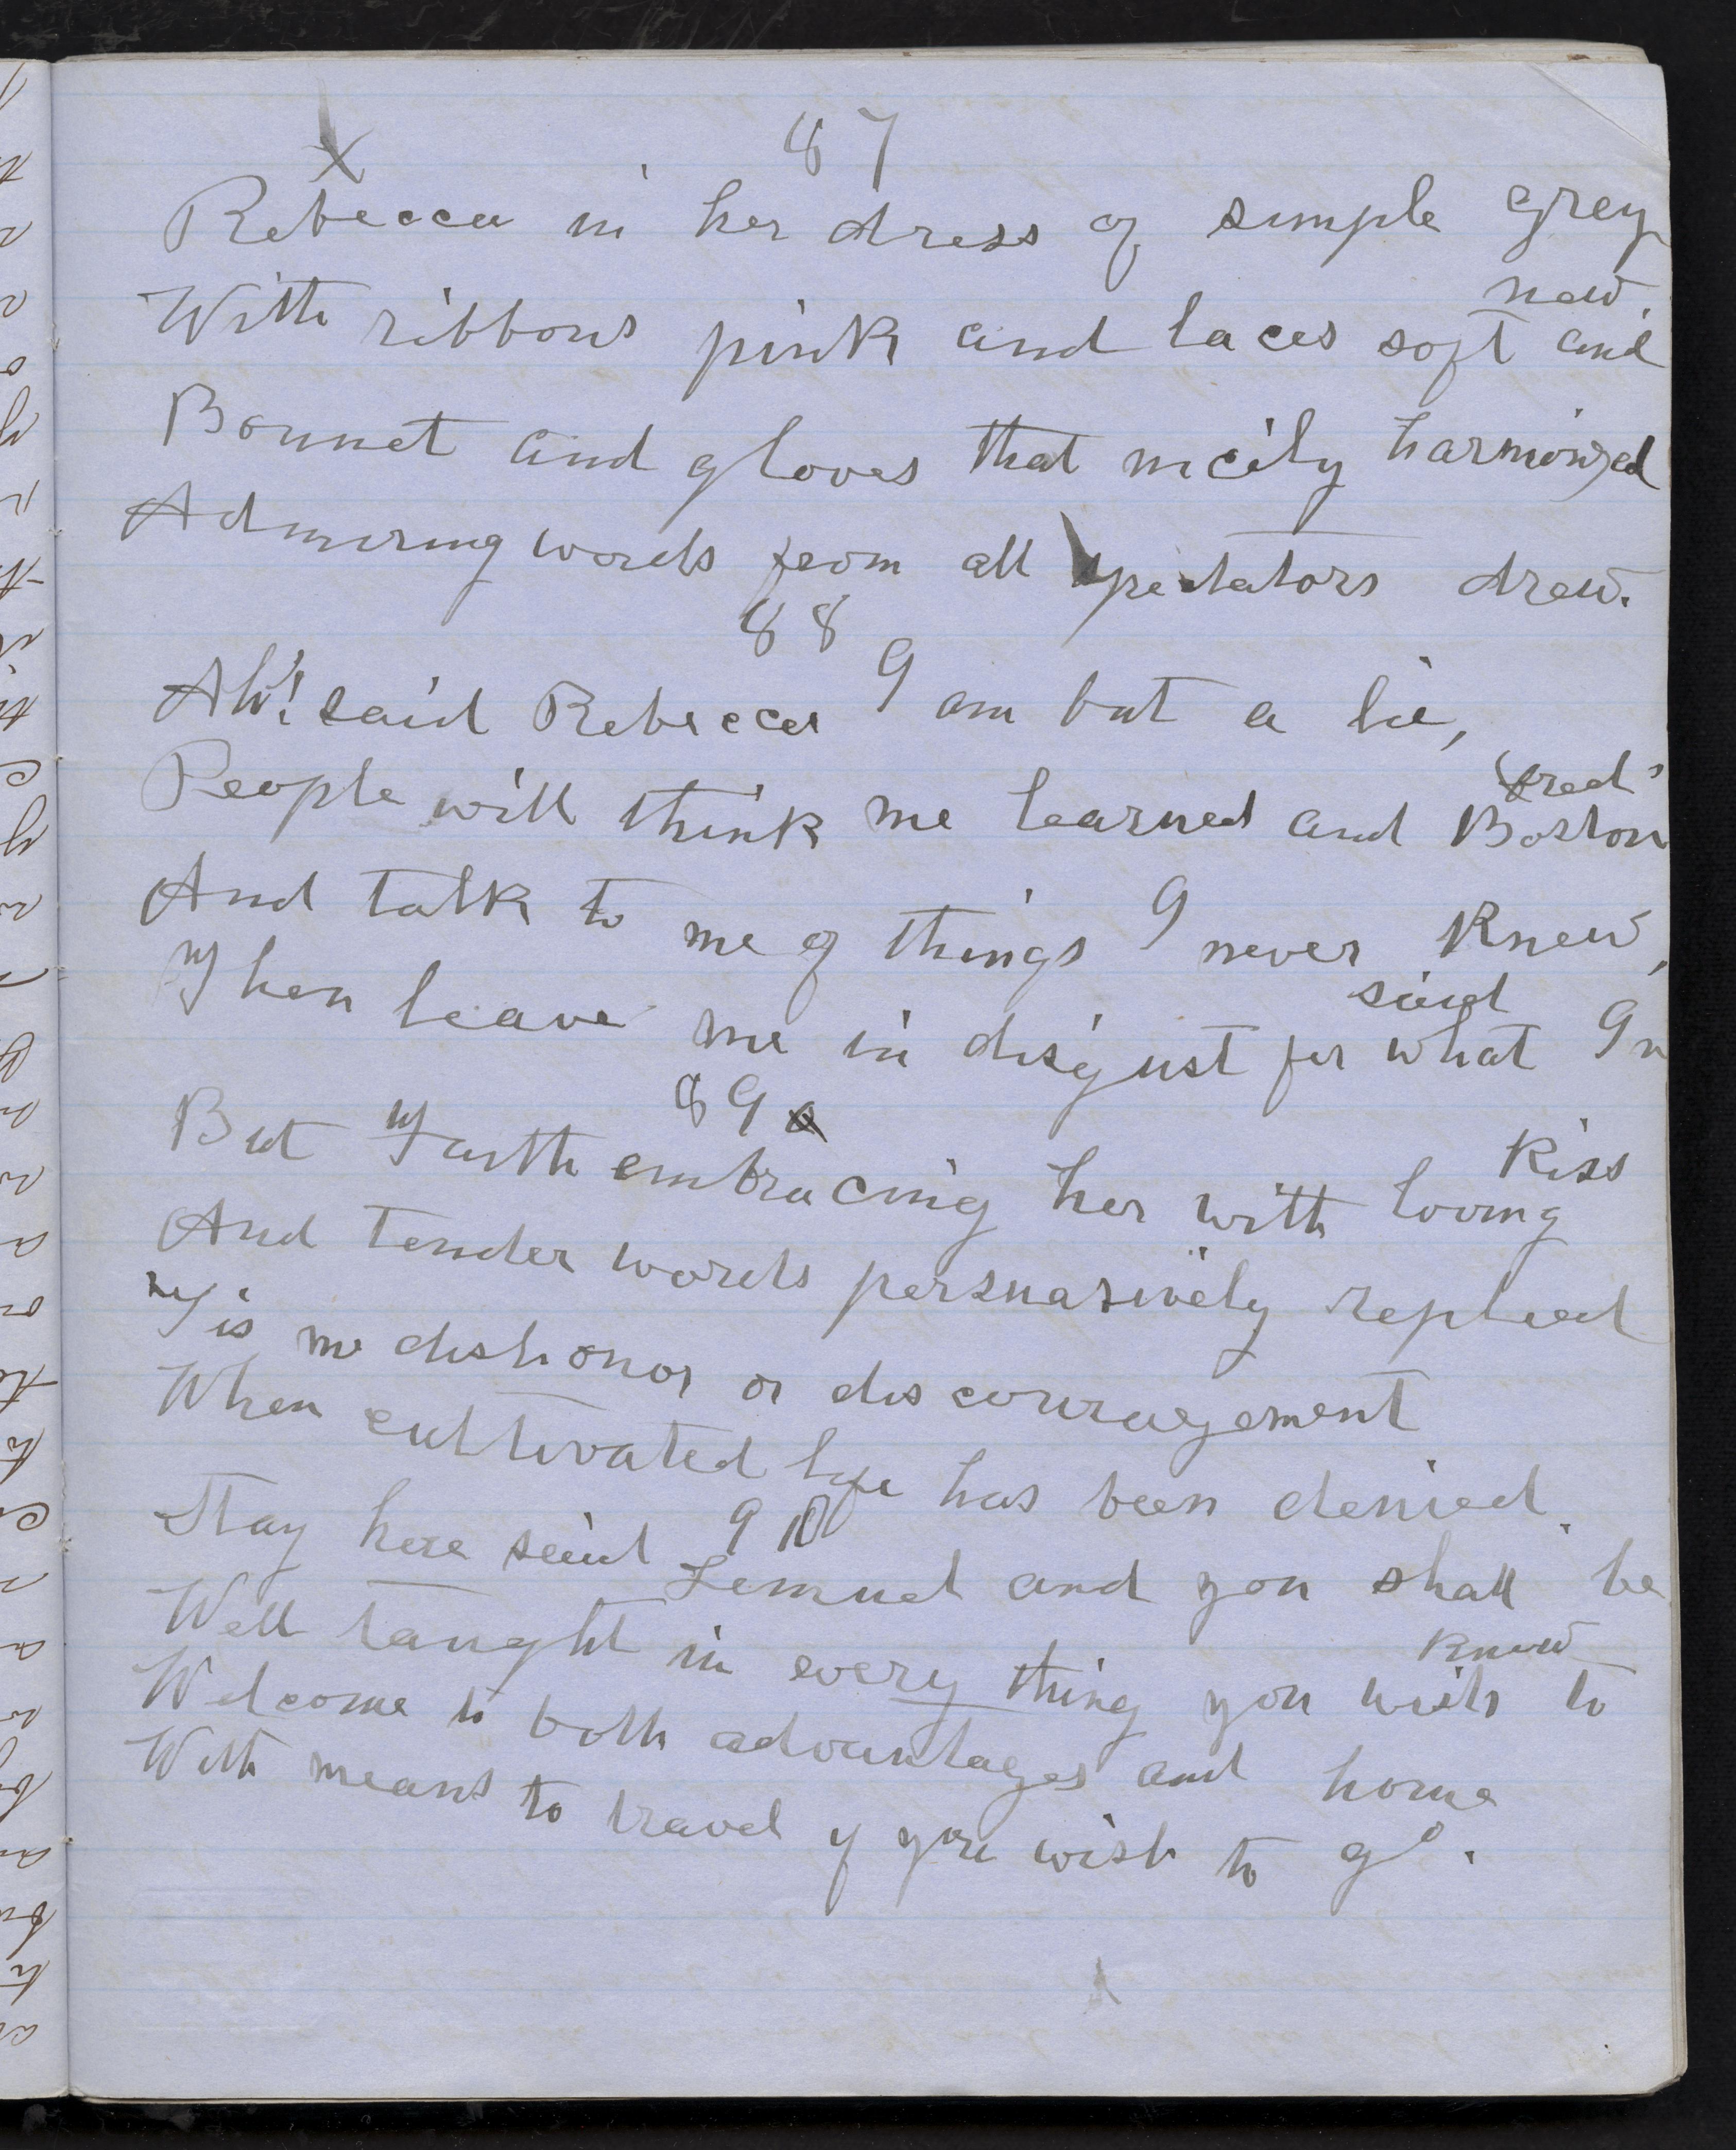 X
87
Rebecca in her dress of simple grey
With ribbons pink and laces soft and new.
Bonnet and gloves that nicely harmonized
Admiring words from all spectators drew.
88
Ah! said Rebecca I am but a lie,
People will think me learned and Boston bred
And talk to me of things I never knew,
Then leave me in disgust for what I said
89
But Faith embracing her with loving kiss
And tender words persuasively replied
Tis no dishonor or discouragement
When cultivated life has been denied.
90
Stay here said Lemuel and you shall be
Well taught in every thing you wish to know
Welcome to both advantages and home
With means to travel if you wish to go.